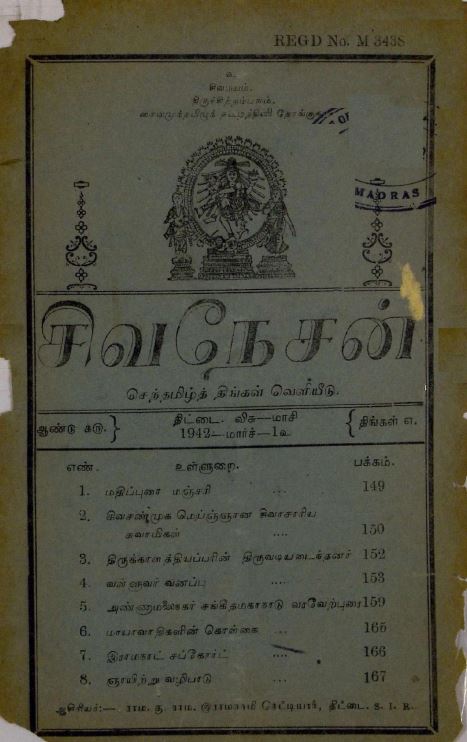 REGD No. M 3438
உ
சிவமயம்.
திருச்சிற்றம்பலம்.
OF
MADRAS
சிவநேசன்
செந்தமிழ்த் திங்கள் வெளியீடு.
ஆண்டு கரு.
திட்டை. விசு—மாசி
1942—மார்ச்—1உ
திங்கள் எ.
எண். உள்ளுறை. பக்கம்.
1. மதிப்புரை மஞ்சரி .... 149
2. சிவசண்முக மெய்ஞ்ஞான சிவாசாரிய
சுவாமிகள் .... 150
3. திருக்காளத்தியப்பரின் திருவடியடைந்தனர் 152
4. வள்ளுவர் வனப்பு ..... 153
5. அண்ணாமலைநகர் சங்கீதமகாநாடு வரவேற்புரை 159
6. மாயாவாதிகளின் கொள்கை ... 165
7. இராமநாட் சப்கோர்ட் .... 166
8. ஞாயிற்று வழிபாடு .... 167
ஆசிரியர்:— ராம. கு. ராம. இராமசாமி செட்டியார், திட்டை. S. I. R.